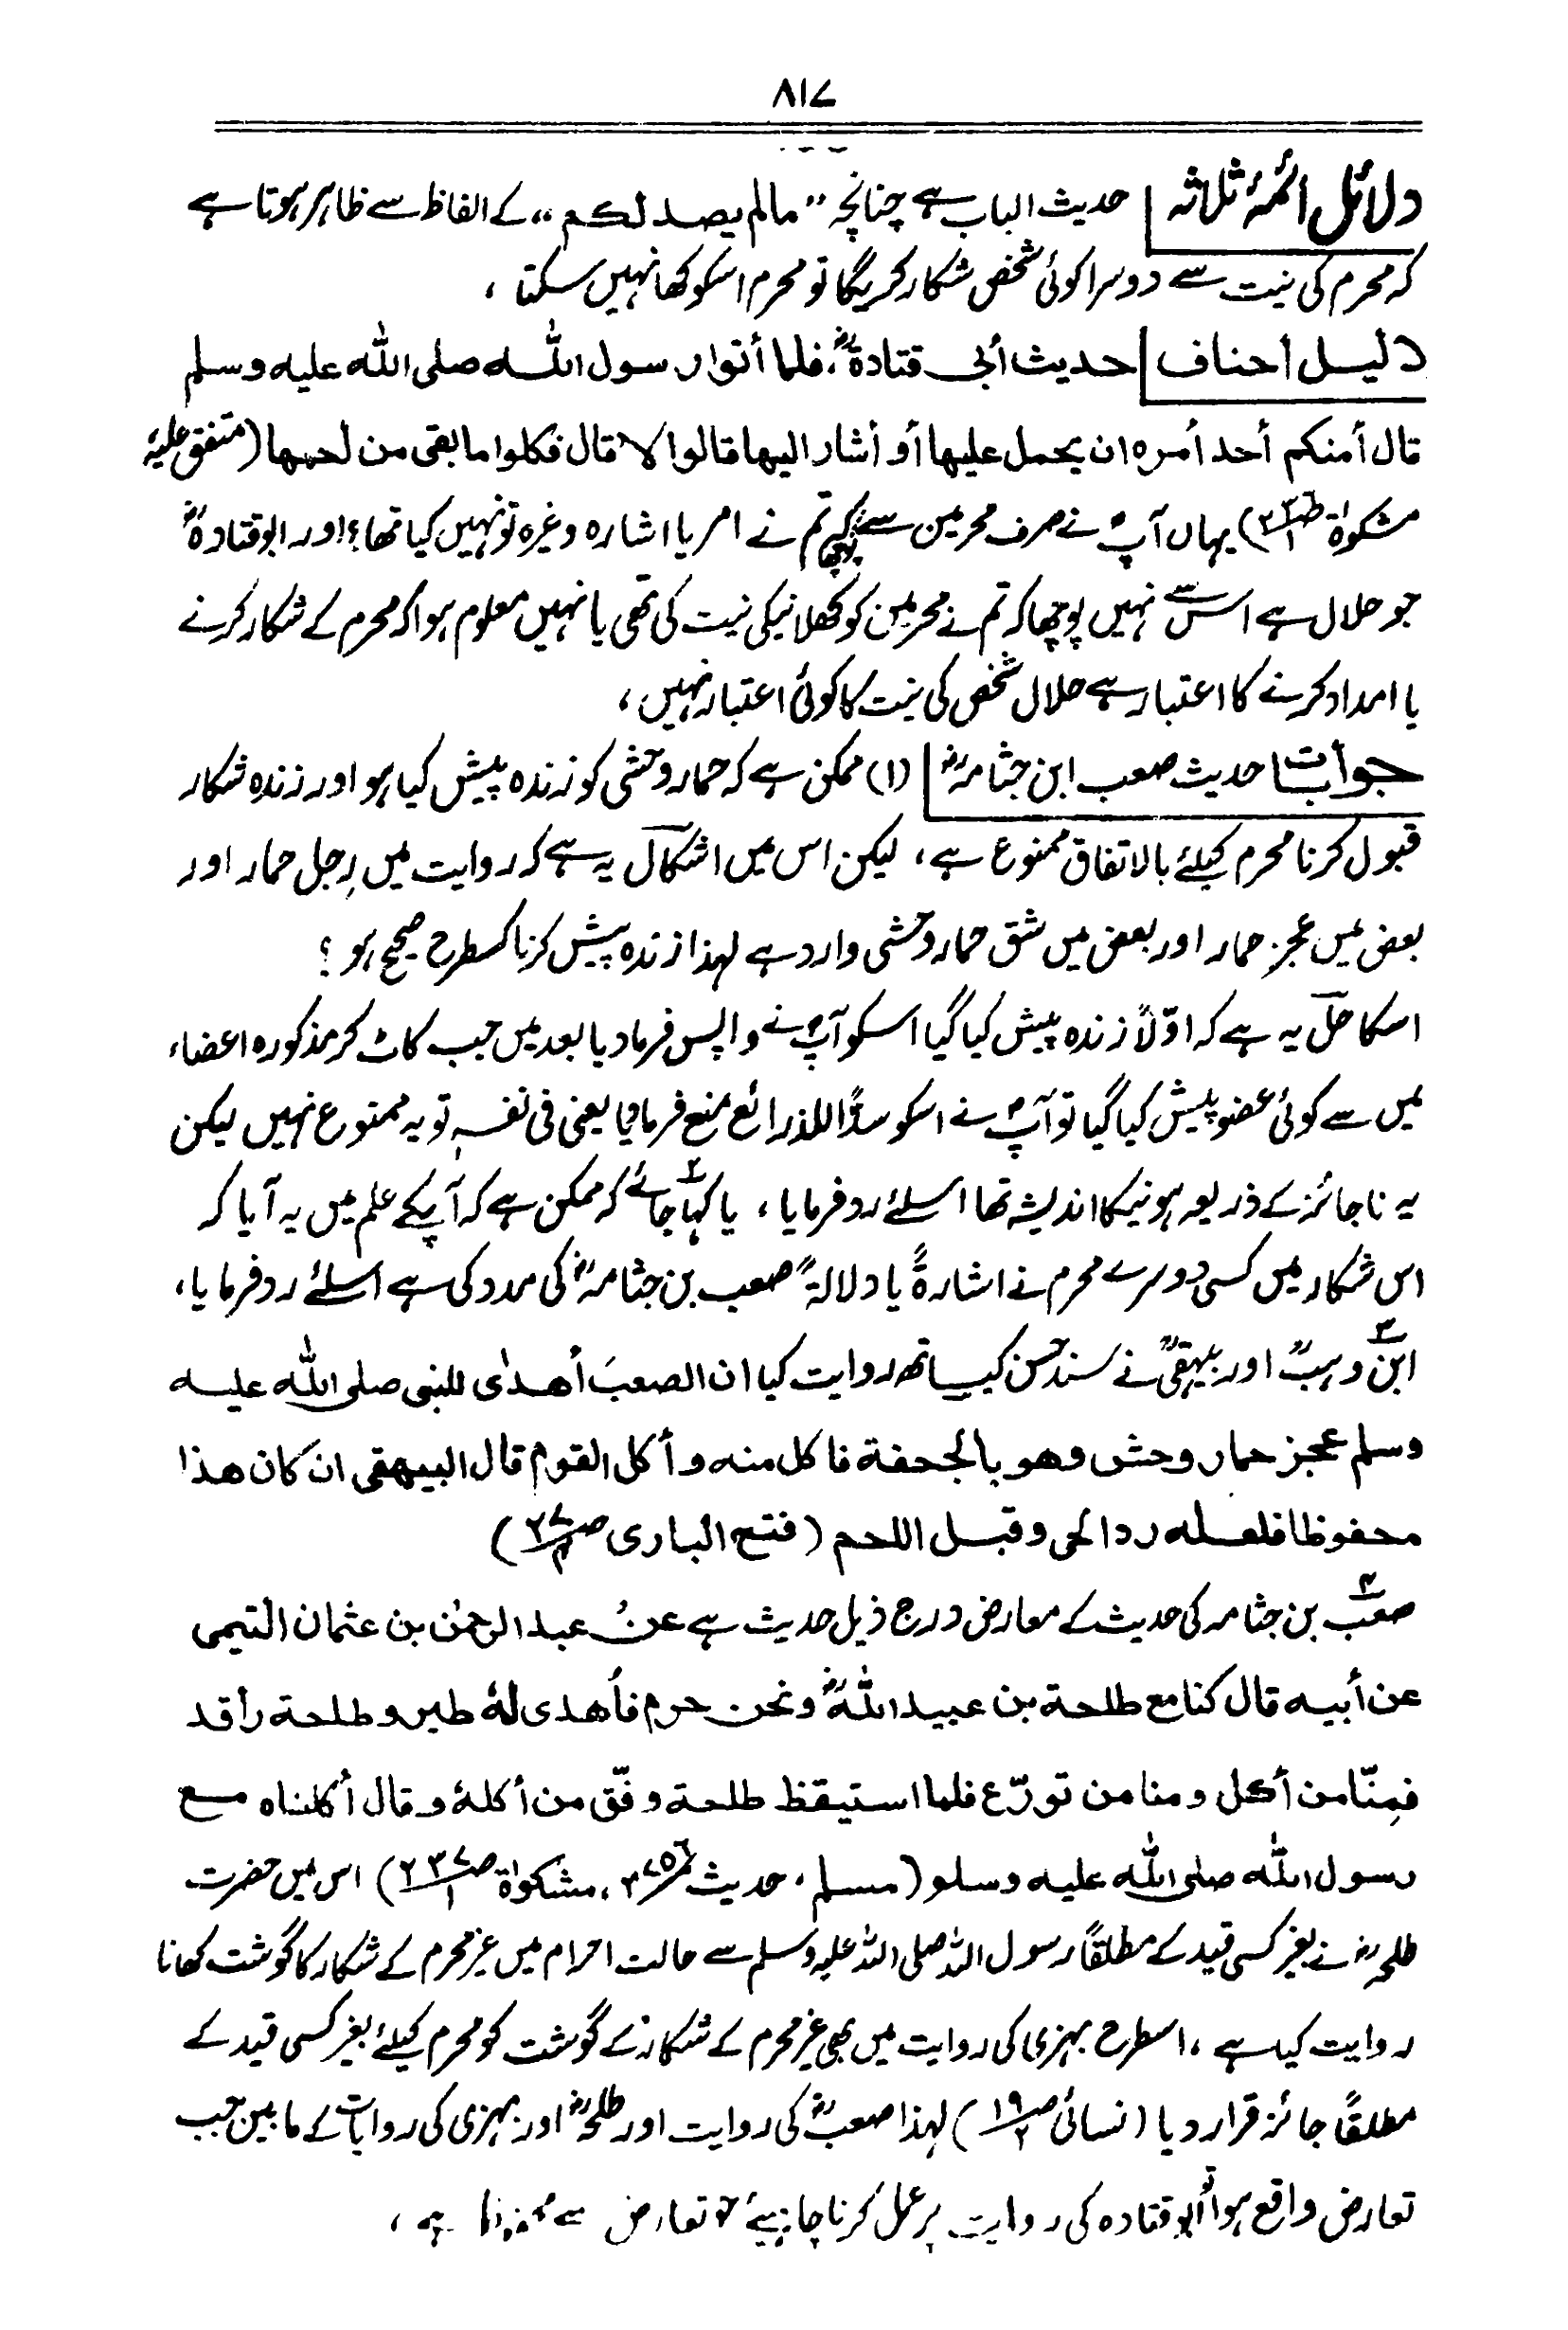 ۸۱۷
دلائل ائمۂ ثلاثہ | حدیث الباب ہے چنانچہ "مالم یصد لکم" کے الفاظ سے ظاہر ہوتا ہے
کہ محرم کی نیت سے دوسرا کوئی شخص شکار کریگا تو محرم اسکو کھا نہیں سکتا ،
دلیل أحناف | حدیث أبی قتادةؓ، فلما أتوا رسول اللہ صلی اللہ علیہ وسلم
قال أمنکم أحد أمرہ ان یحمل علیها أو أشار الیها قالوا لا قال فکلوا ما بقی من لحمها (متفق علیہ
مشکوٰۃ) یہاں آپؐ نے صرف محرمین سے پوچھا کہ تم نے امر یا اشارہ وغیرہ تو نہیں کیا تھا؟ اور ابو قتادہؓ
جو حلال ہے اس سے نہیں پوچھا کہ تم نے محرمین کو کھلانیکی نیت کی تھی یا نہیں معلوم ہوا کہ محرم کے شکار کرنے
یا امداد کرنے کا اعتبار ہے حلال شخص کی نیت کا کوئی اعتبار نہیں ،
جوابات حدیث صعب ابن جثامہؓ | (۱) ممکن ہے کہ حمار وحشی کو زندہ پیش کیا ہو اور زندہ شکار
قبول کرنا محرم کیلئے بالاتفاق ممنوع ہے ، لیکن اس میں اشکال یہ ہے کہ روایت میں رِجل حمار اور
بعض میں عجز حمار اور بعض میں شق حمار وحشی وارد ہے لہذا زندہ پیش کرنا کسطرح صحیح ہو ؟
اسکا حل یہ ہے کہ اوّلاً زندہ پیش کیا گیا اسکو آپؐ نے واپس فرمادیا بعد میں جب کاٹ کر مذکورہ اعضاء
میں سے کوئی عضو پیش کیا گیا تو آپؐ نے اسکو سدًّا للذرائع منع فرمایا یعنی فی نفسہٖ تو یہ ممنوع نہیں لیکن
یہ ناجائز کے ذریعہ ہونیکا اندیشہ تھا اسلئے رد فرمایا ، ۲ یا کہا جائے کہ ممکن ہے کہ آپکے علم میں یہ آیا کہ
اس شکار میں کسی دوسرے محرم نے اشارۃً یا دلالۃً صعب بن جثامہؓ کی مدد کی ہے اسلئے رد فرمایا،
۳ ابن وہبؒ اور بیہقیؒ نے سند حسن کیساتھ روایت کیا ان الصعبَ أهدٰی للنبی صلی اللہ علیہ
وسلم عجز حمار وحش وهو بالجحفة فاکل منه وأکل القوم قال البیهقی ان کان هذا
محفوظا فلعله رد الحی وقبل اللحم (فتح الباری)
۴ صعب بن جثامہ کی حدیث کے معارض درج ذیل حدیث ہے عن عبد الرحمٰن بن عثمان التیمی
عن أبیه قال کنا مع طلحة بن عبید اللہؓ ونحن حرم فأهدی لهٗ طیر وطلحة رأقد
فمِنّا من أکل ومنا من تورّع فلما استیقظ طلحة وفّق من أکلهٗ وقال أکلناه مع
رسول اللہ صلی اللہ علیہ وسلو (مسلم ، حدیث، مشکوٰۃ) اس میں حضرت
طلحہؓ نے بغیر کسی قید کے مطلقًا رسول اللہ صلی اللہ علیہ وسلم سے حالت احرام میں غیر محرم کے شکار کا گوشت کھانا
روایت کیا ہے ، اسطرح بہزی کی روایت میں بھی غیر محرم کے شکار کے گوشت کو محرم کیلئے بغیر کسی قید کے
مطلقًا جائز قرار دیا (نسائی) لہذا صعبؓ کی روایت اور طلحہؓ اور بہزی کی روایات کے مابین جب
تعارض واقع ہوا تو ابو قتادہ کی روایت پر عمل کرنا چاہیئے جو تعارض سے محفوظ ہے ،